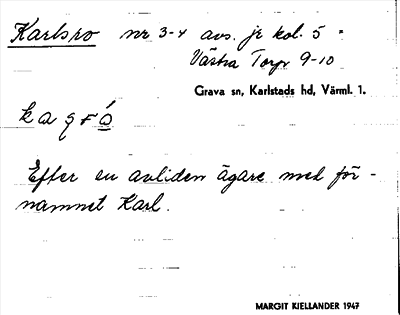 Karlsro nr 3-4 avs. jr kol. 5 =
Västra Torp 9-10
Grava sn, Karlstads hd, Värml. 1.
Efter en avliden ägare med för-
namnet Karl.
MARGIT KJELLANDER 1947